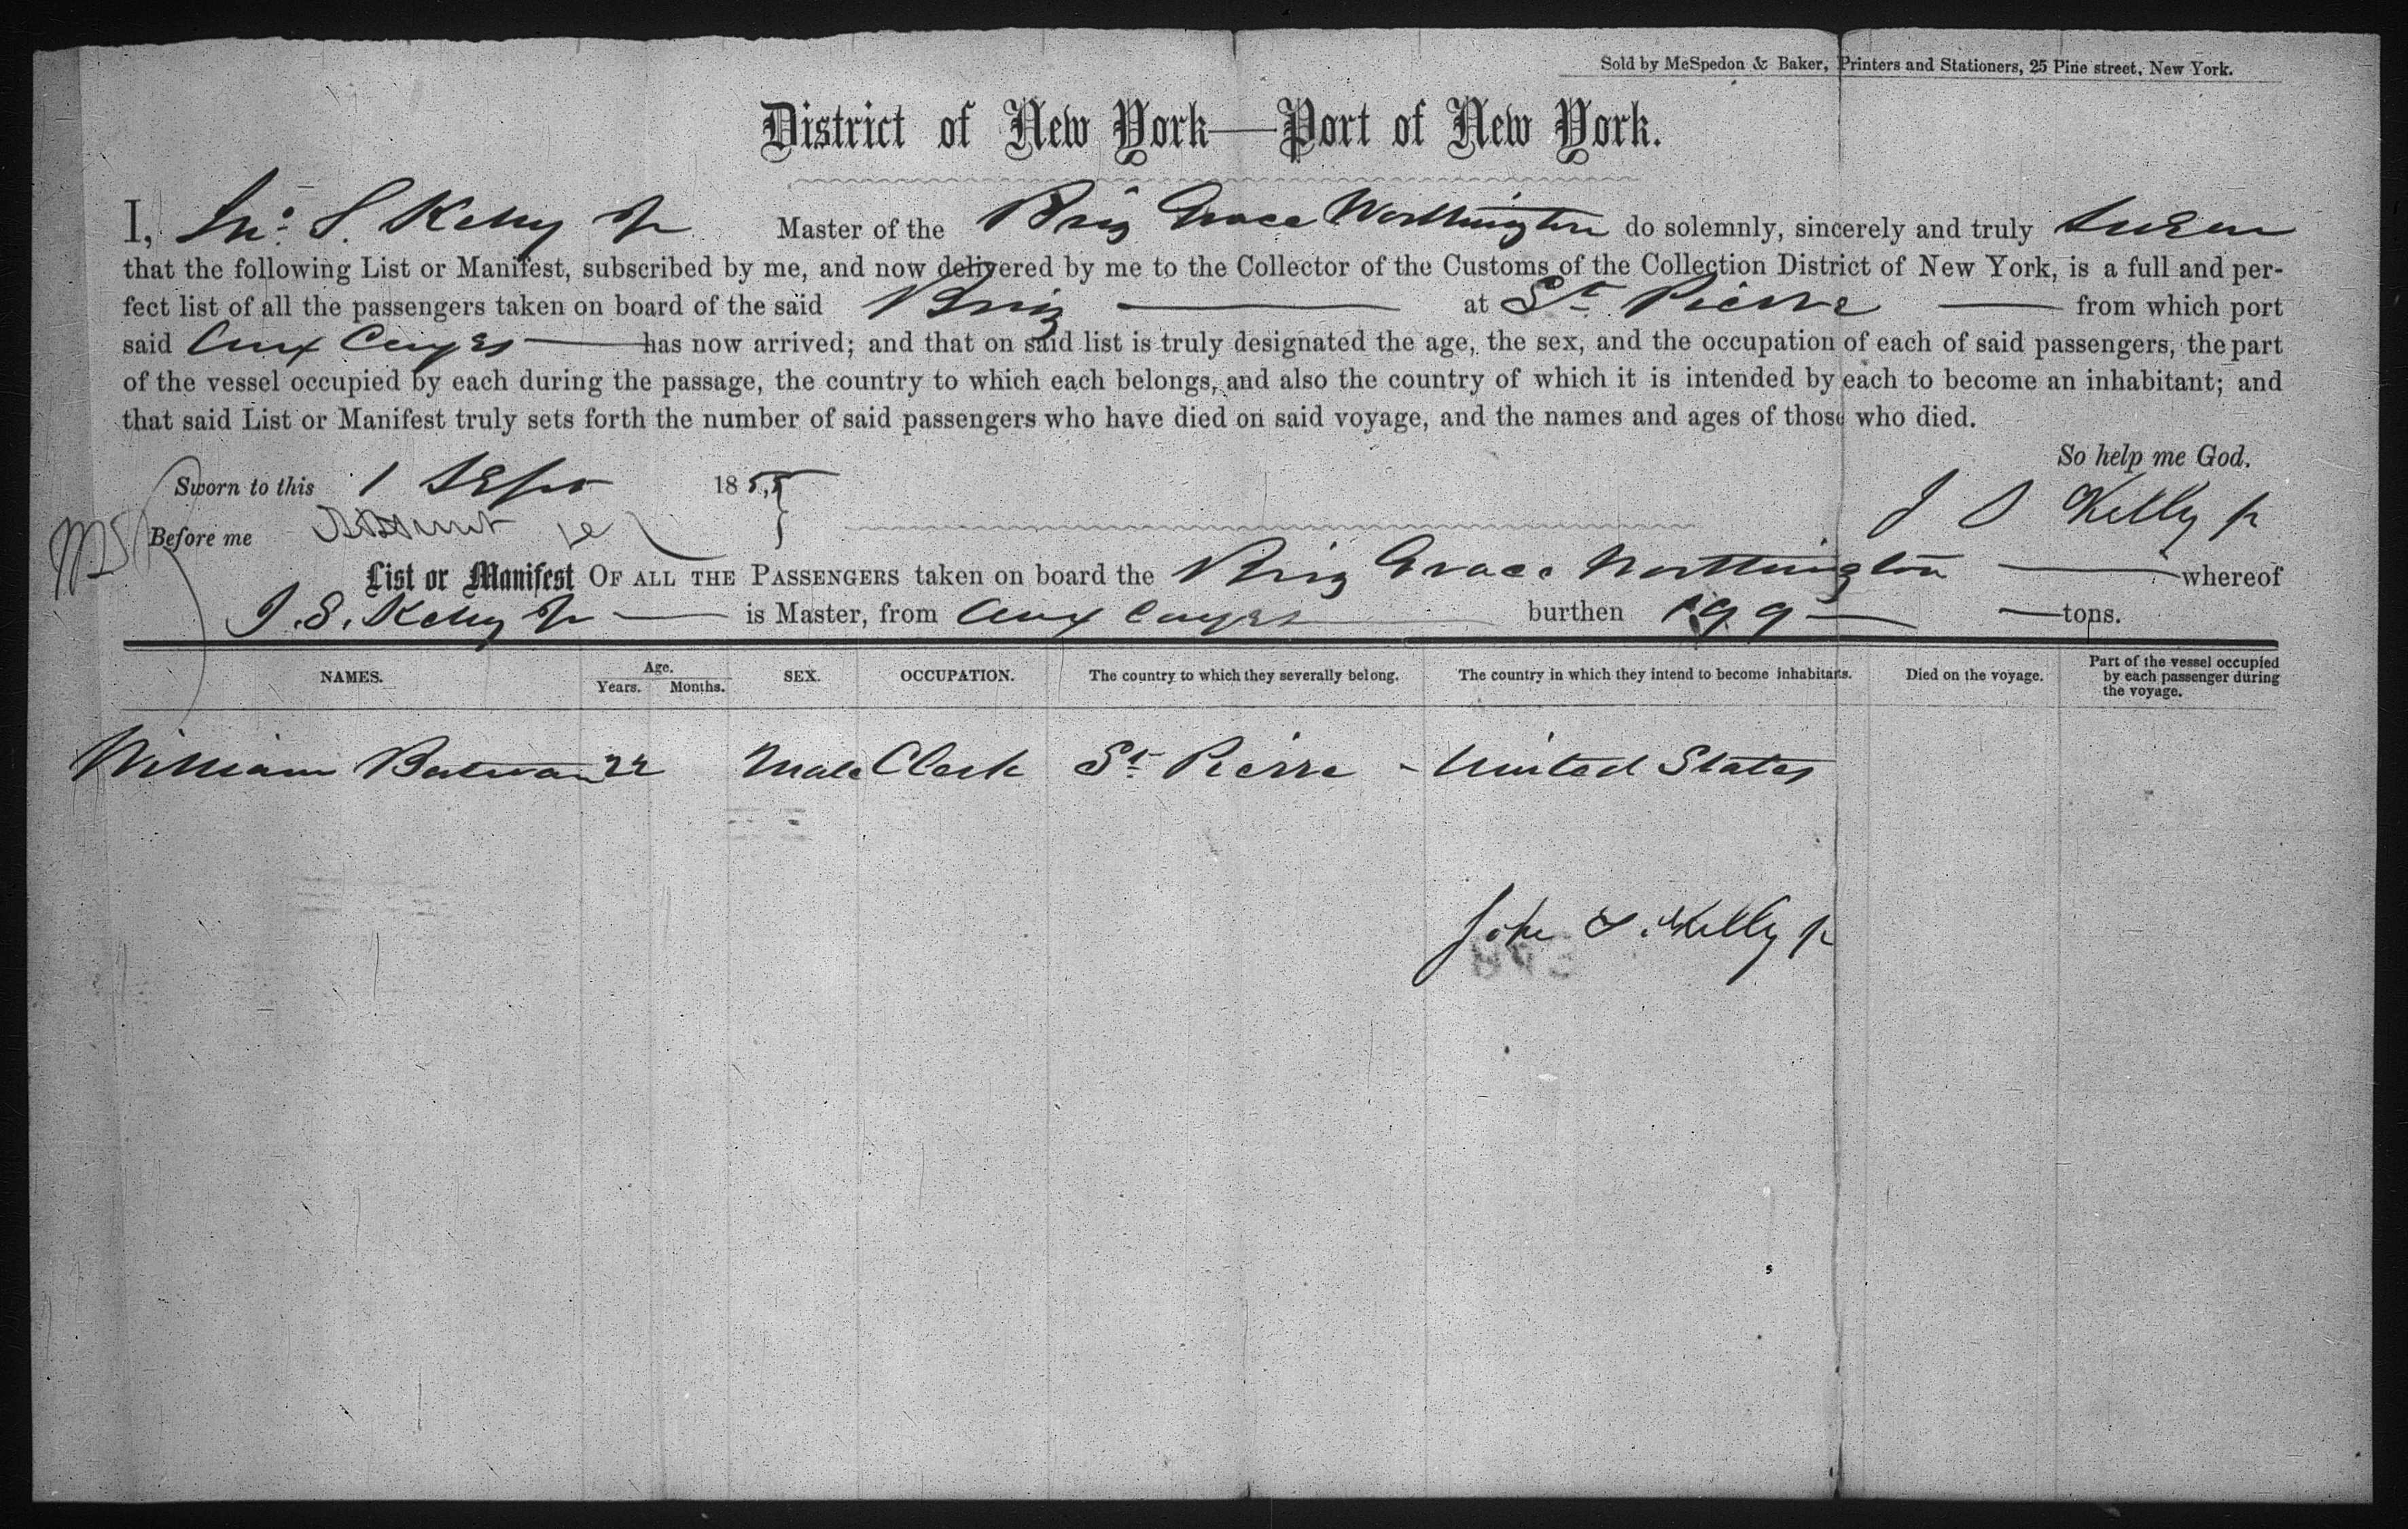 Sold by McSpedon & Baker, Printers and Stationers, 25 Pine street, New York.
District of New York—Port of New York.
I, Jno. S. Kelly Jr Master of the Brig Grace Worthington do solemnly, sincerely and truly swear
that the following List or Manifest, subscribed by me, and now delivered by me to the Collector of the Customs of the Collection District of New York, is a full and per-
fect list of all the passengers taken on board of the said Brig — at St. Pierre — from which port
said Aux Cayes — has now arrived; and that on said list is truly designated the age, the sex, and the occupation of each of said passengers, the part
of the vessel occupied by each during the passage, the country to which each belongs, and also the country of which it is intended by each to become an inhabitant; and
that said List or Manifest truly sets forth the number of said passengers who have died on said voyage, and the names and ages of those who died.
So help me God.
Sworn to this 1 Sept 1855
J S Kelly jr
Before me
List or Manifest OF ALL THE PASSENGERS taken on board the Brig Grace Worthington — whereof
J. S. Kelly Jr — is Master, from Aux Cayes burthen 199 — tons.
NAMES. Age. Years. Months. SEX. OCCUPATION. The country to which they severally belong. The country in which they intend to become inhabitants. Died on the voyage. Part of the vessel occupied by each passenger during the voyage.
William 22 Male Clerk St. Pierre - United States
John S. Kelly jr